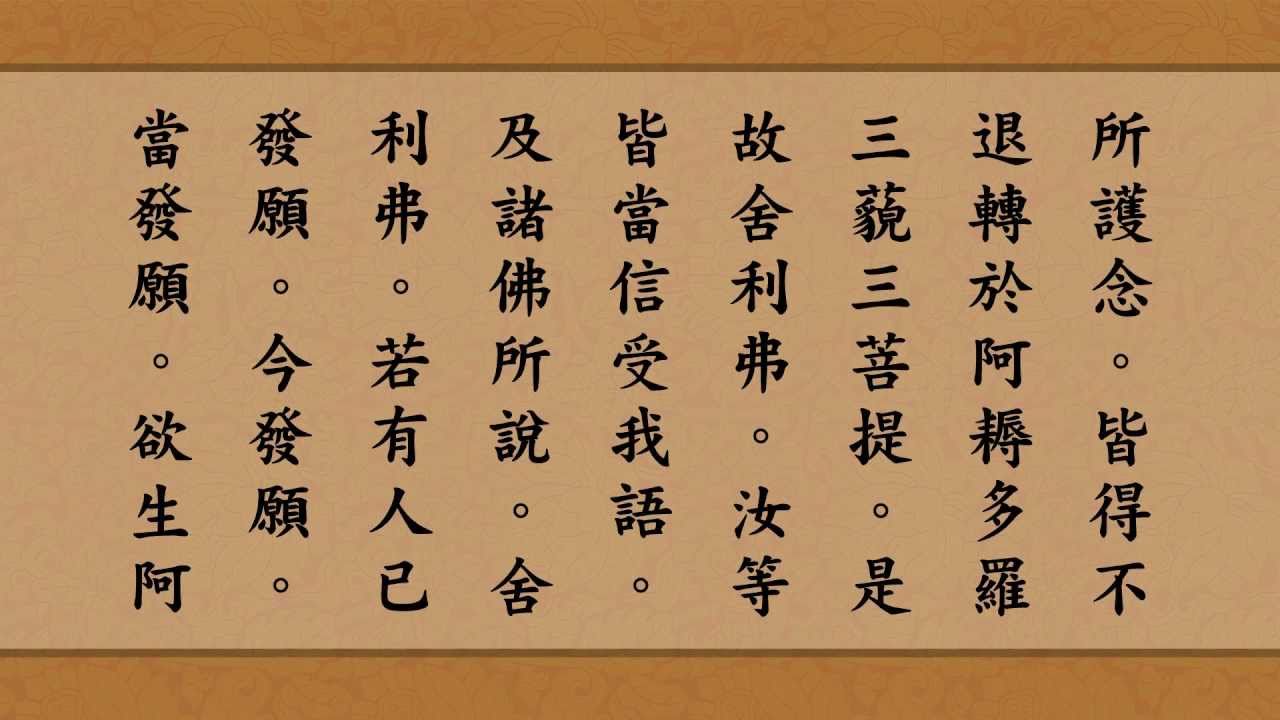 所護念。皆得不
退轉於阿耨多羅
三藐三菩提。是
故舍利弗。汝等
皆當信受我語。
及諸佛所說。舍
利弗。若有人已
發願。今發願。
當發願。欲生阿